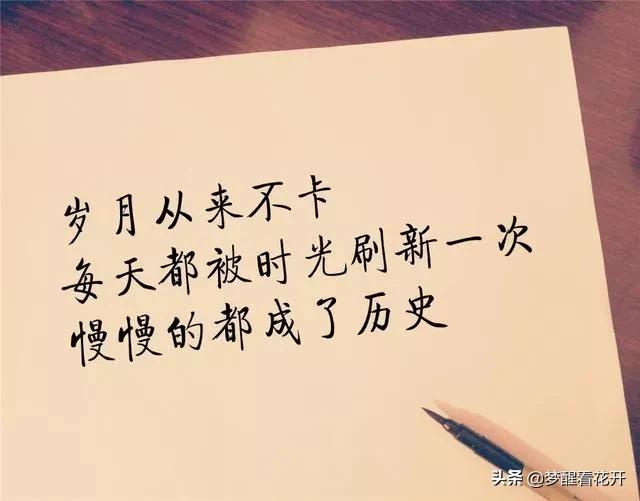 岁月从来不卡
每天都被时光刷新一次
慢慢的都成了历史
头条@梦醒看花开